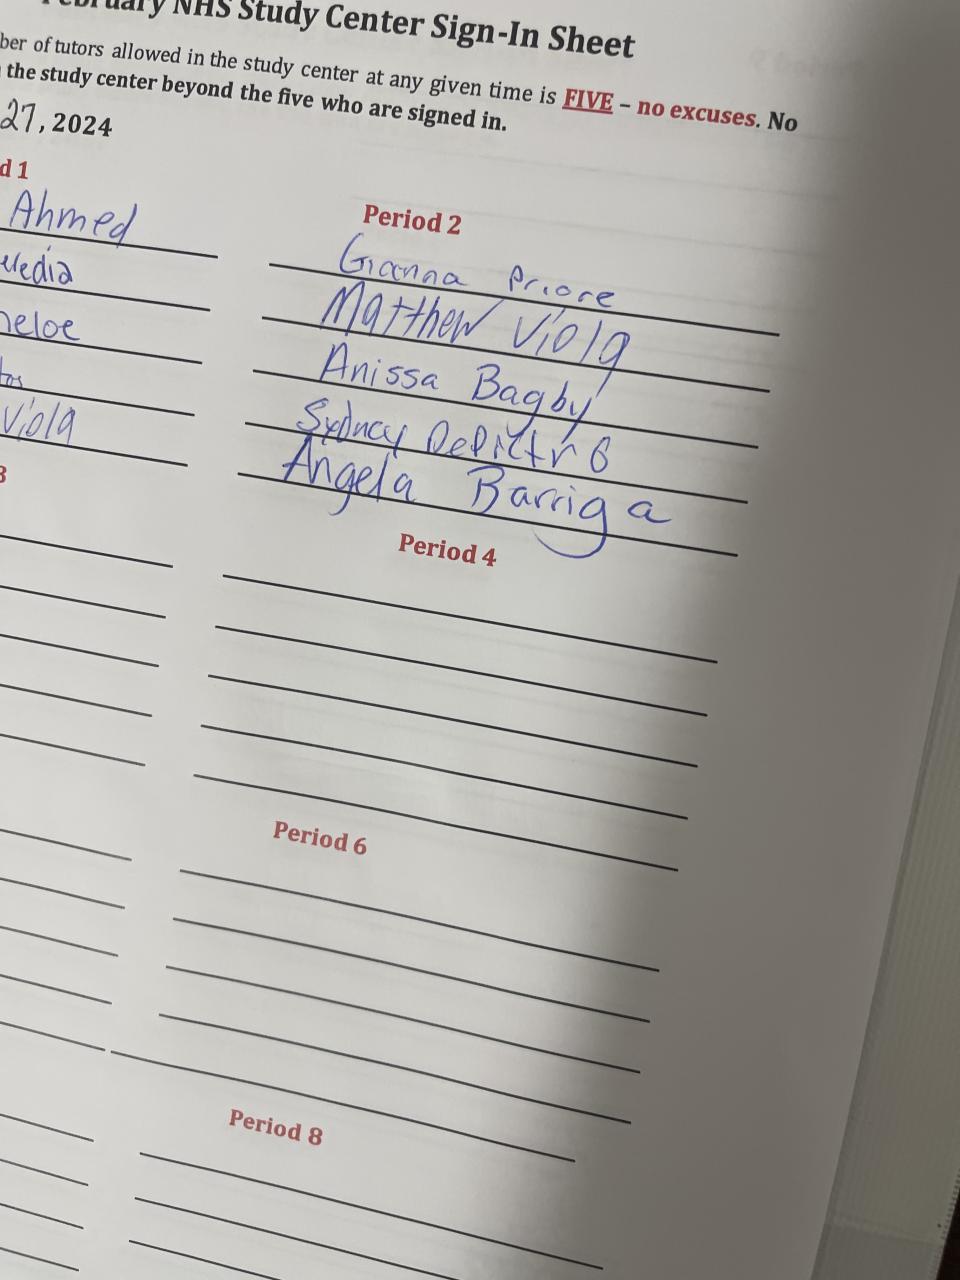 February NHS Study Center Sign-In Sheet
ber of tutors allowed in the study center at any given time is FIVE – no excuses. No
the study center beyond the five who are signed in.
27, 2024
d 1
Ahmed
edia
neloe
tos
Viola
Period 2
Gianna Priore
Matthew Viola
Anissa Bagby
Sydney
Angela Barriga
3
Period 4
Period 6
Period 8